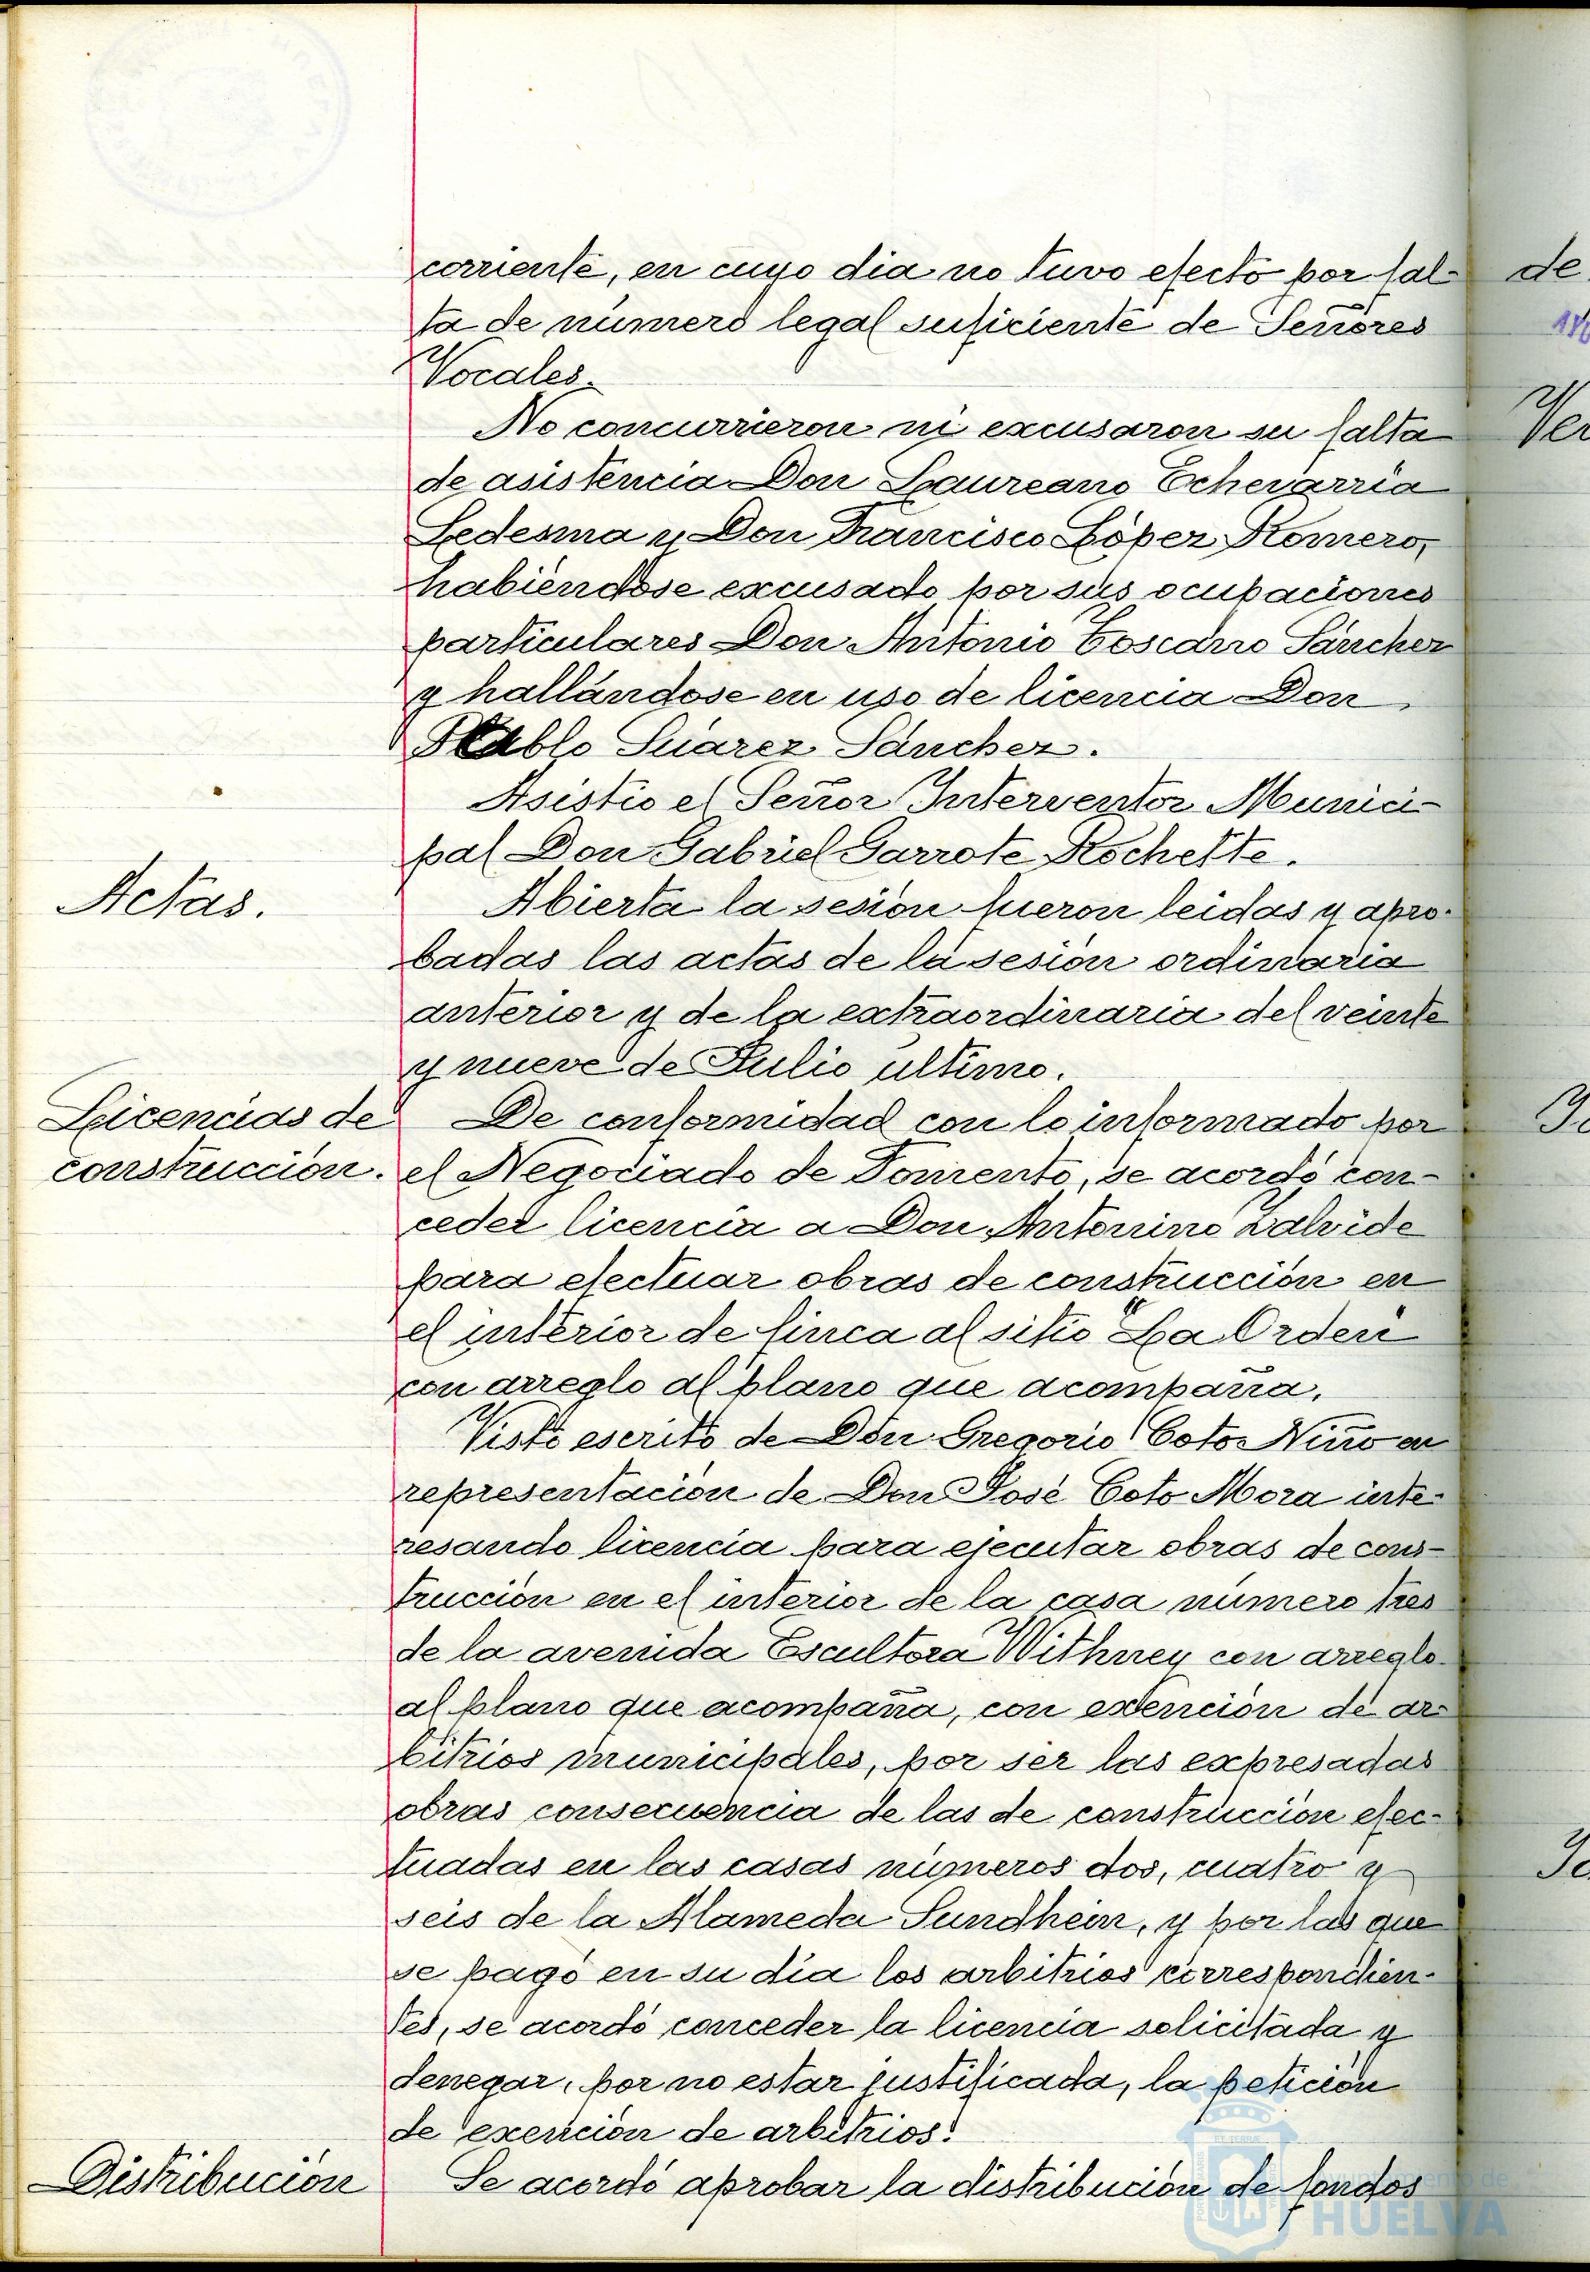 corriente, en cuyo dia no tuvo efecto por fal-
ta de número legal suficiente de Señores
Vocales.
No concurrieron ni excusaron su falta
de asistencia Don Laureano Echevarria
Ledesma y Don Francisco López Romero,
habiéndose excusado por sus ocupaciones
particulares Don Antonio Toscano Sánchez
y hallándose en uso de licencia Don
Pablo Suárez Sánchez.
Asistio el Señor Interventor Munici-
pal Don Gabriel Garrote Rochette.
Actas.
Abierta la sesión fueron leidas y apro-
badas las actas de la sesión ordinaria
anterior y de la extraordinaria del veinte
y nueve de Julio último.
Licencias de
construcción.
De conformidad con lo informado por
el Negociado de Fomento, se acordó con-
ceder licencia a Don Antonino Zalvide
para efectuar obras de construcción en
el interior de finca al sitio "La Orden"
con arreglo al plano que acompaña.
Visto escrito de Don Gregorio Coto Niño en
representación de Don José Coto Mora inte-
resando licencia para ejecutar obras de cons-
trucción en el interior de la casa número tres
de la avenida Escultora Withney con arreglo
al plano que acompaña, con exención de ar-
bitrios municipales, por ser las expresadas
obras consecuencia de las de construcción efec-
tuadas en las casas números dos, cuatro y
seis de la Alameda Sundhein, y por las que
se pagó en su dia los arbitrios correspondien-
tes, se acordó conceder la licencia solicitada y
denegar, por no estar justificada, la petición
de exención de arbitrios.
Distribución
Se acordó aprobar la distribución de fondos
de
Ver
Ayuntamiento de
HUELVA